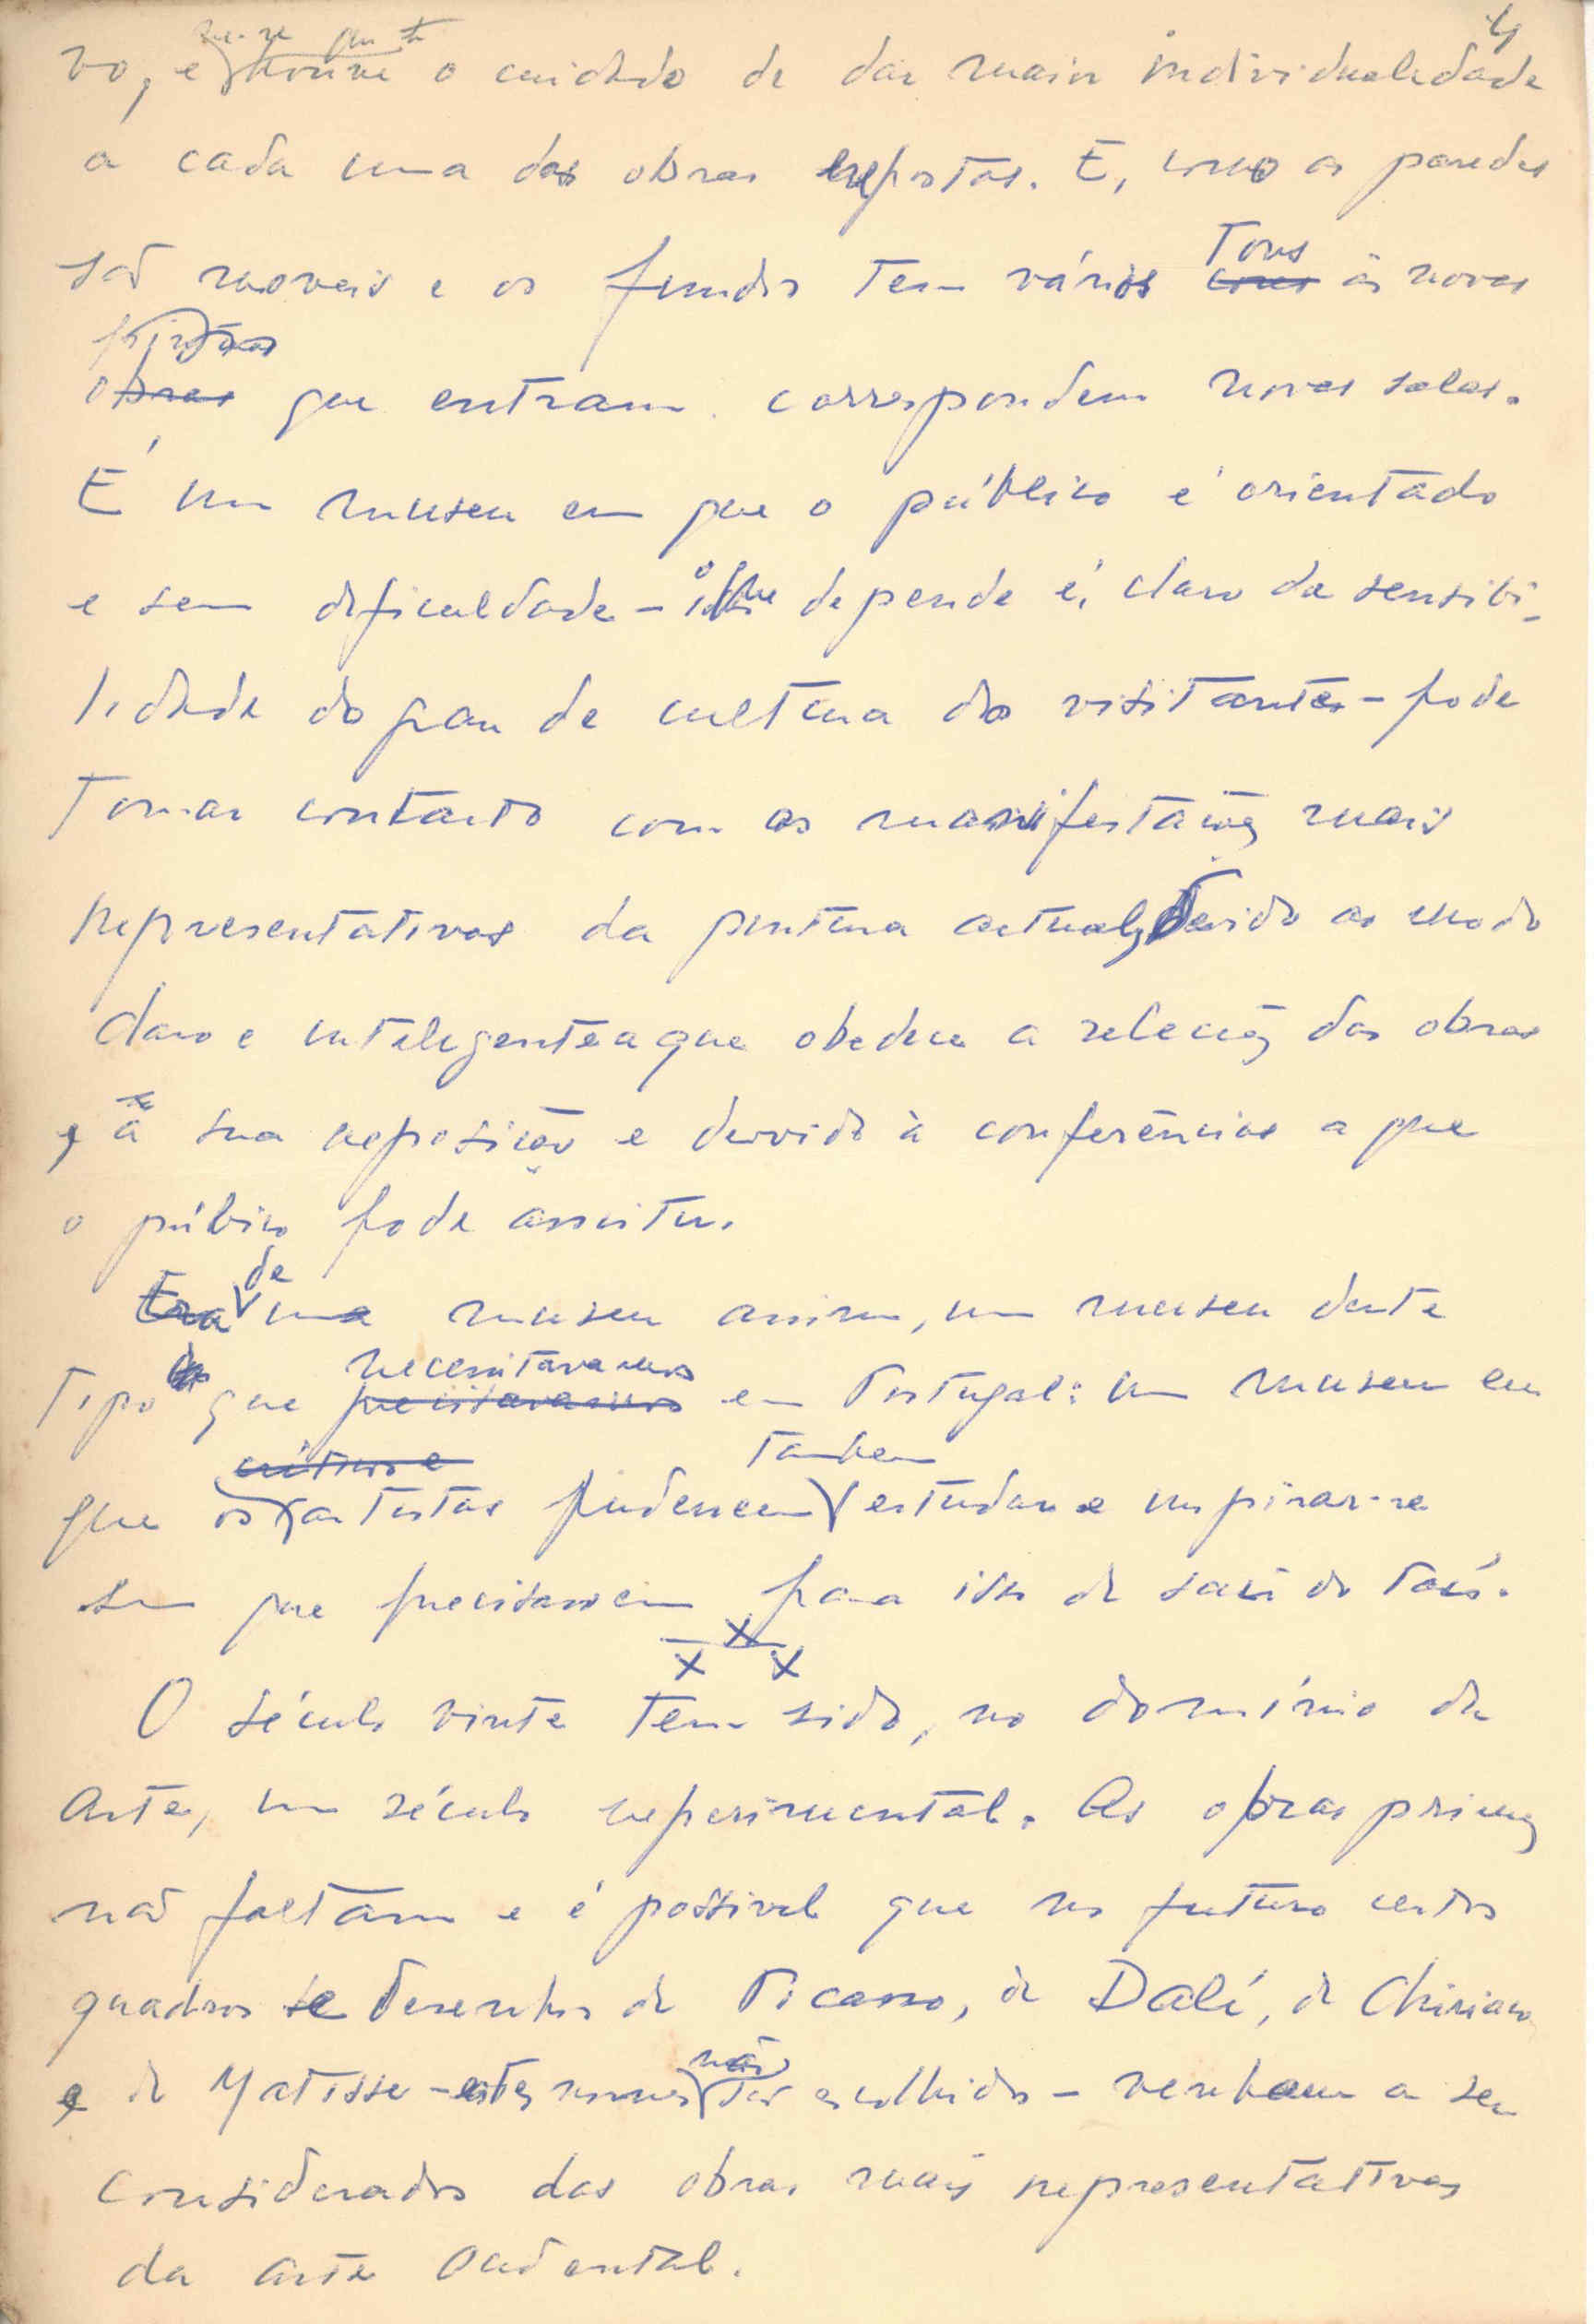 4
vo, e houve o cuidado de dar maior individualidade
a cada uma das obras expostas. E, como as paredes
são moveis e os fundos tem vários cores Tons às novas
obras pinturas que entram correspondem novas salas.
É um museu em que o público é orientado
e sem dificuldade - o que depende é, claro da sensibi-
lidade do grau de cultura dos visitantes - pode
Tomar contacto com as manifestações mais
representativas da pintura actual, devido ao modo
claro e inteligente a que obedece a selecção das obras
e à sua exposição e devido à conferências a que
o público pode assistir.
Era de um museu assim, um museu deste
Tipo que precisavamos necessitavamos em Portugal: um museu em
que os críticos e artistas pudessem tambem estudar e inspirar-se
sem que precisassem para isso de sair do País.
x
x x
O século vinte tem sido, no domínio da
Arte, um século experimental. As obras primas
não faltam e é possivel que no futuro certos
quadros e desenhos de Picasso, de Dalí, de Chirico
e de Matisse - estes nomes não são escolhidos - venham a ser
considerados das obras mais representativas
da arte Ocidental.